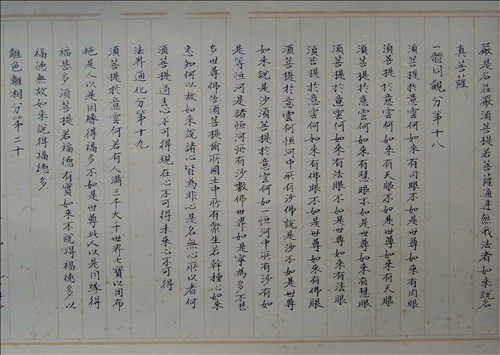 嚴是名莊嚴須菩提若菩薩通達無我法者如來說名
真菩薩
一體同觀分第十八
須菩提於意雲何如來有肉眼不如是世尊如來有肉眼
須菩提於意雲何如來有天眼不如是世尊如來有天眼
須菩提於意雲何如來有慧眼不如是世尊如來有慧眼
須菩提於意雲何如來有法眼不如是世尊如來有法眼
須菩提於意雲何如來有佛眼不如是世尊如來有佛眼
須菩提於意雲何恒河中所有沙佛說是沙不如是世尊
如來說是沙須菩提於意雲何如一恒河中所有沙有如
是等恒河是諸恒河所有沙數佛世界如是寧為多不甚
多世尊佛告須菩提爾所國土中所有衆生若幹種心如來
悉知何以故如來說諸心皆為非心是名無心所以者何
須菩提過去心不可得現在心不可得未來心不可得
法界通化分第十九
須菩提於意雲何若有人滿三千大千世界七寶以用布
施是人以是因緣得福多不如是世尊此人以是因緣得
福甚多須菩提若福德有實如來不說得福德多以
福德無故如來說得福德多
離色離相分第二十